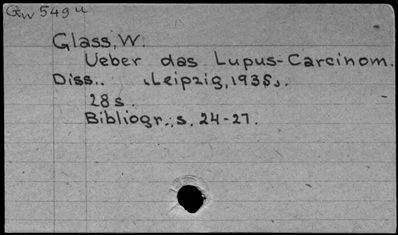 Gw 549 u
Glass, W.
Ueber das Lupus-Carcinom.
Diss.. (Leipzig, 1935).
28 s.
Bibliogr.: s. 24-27.